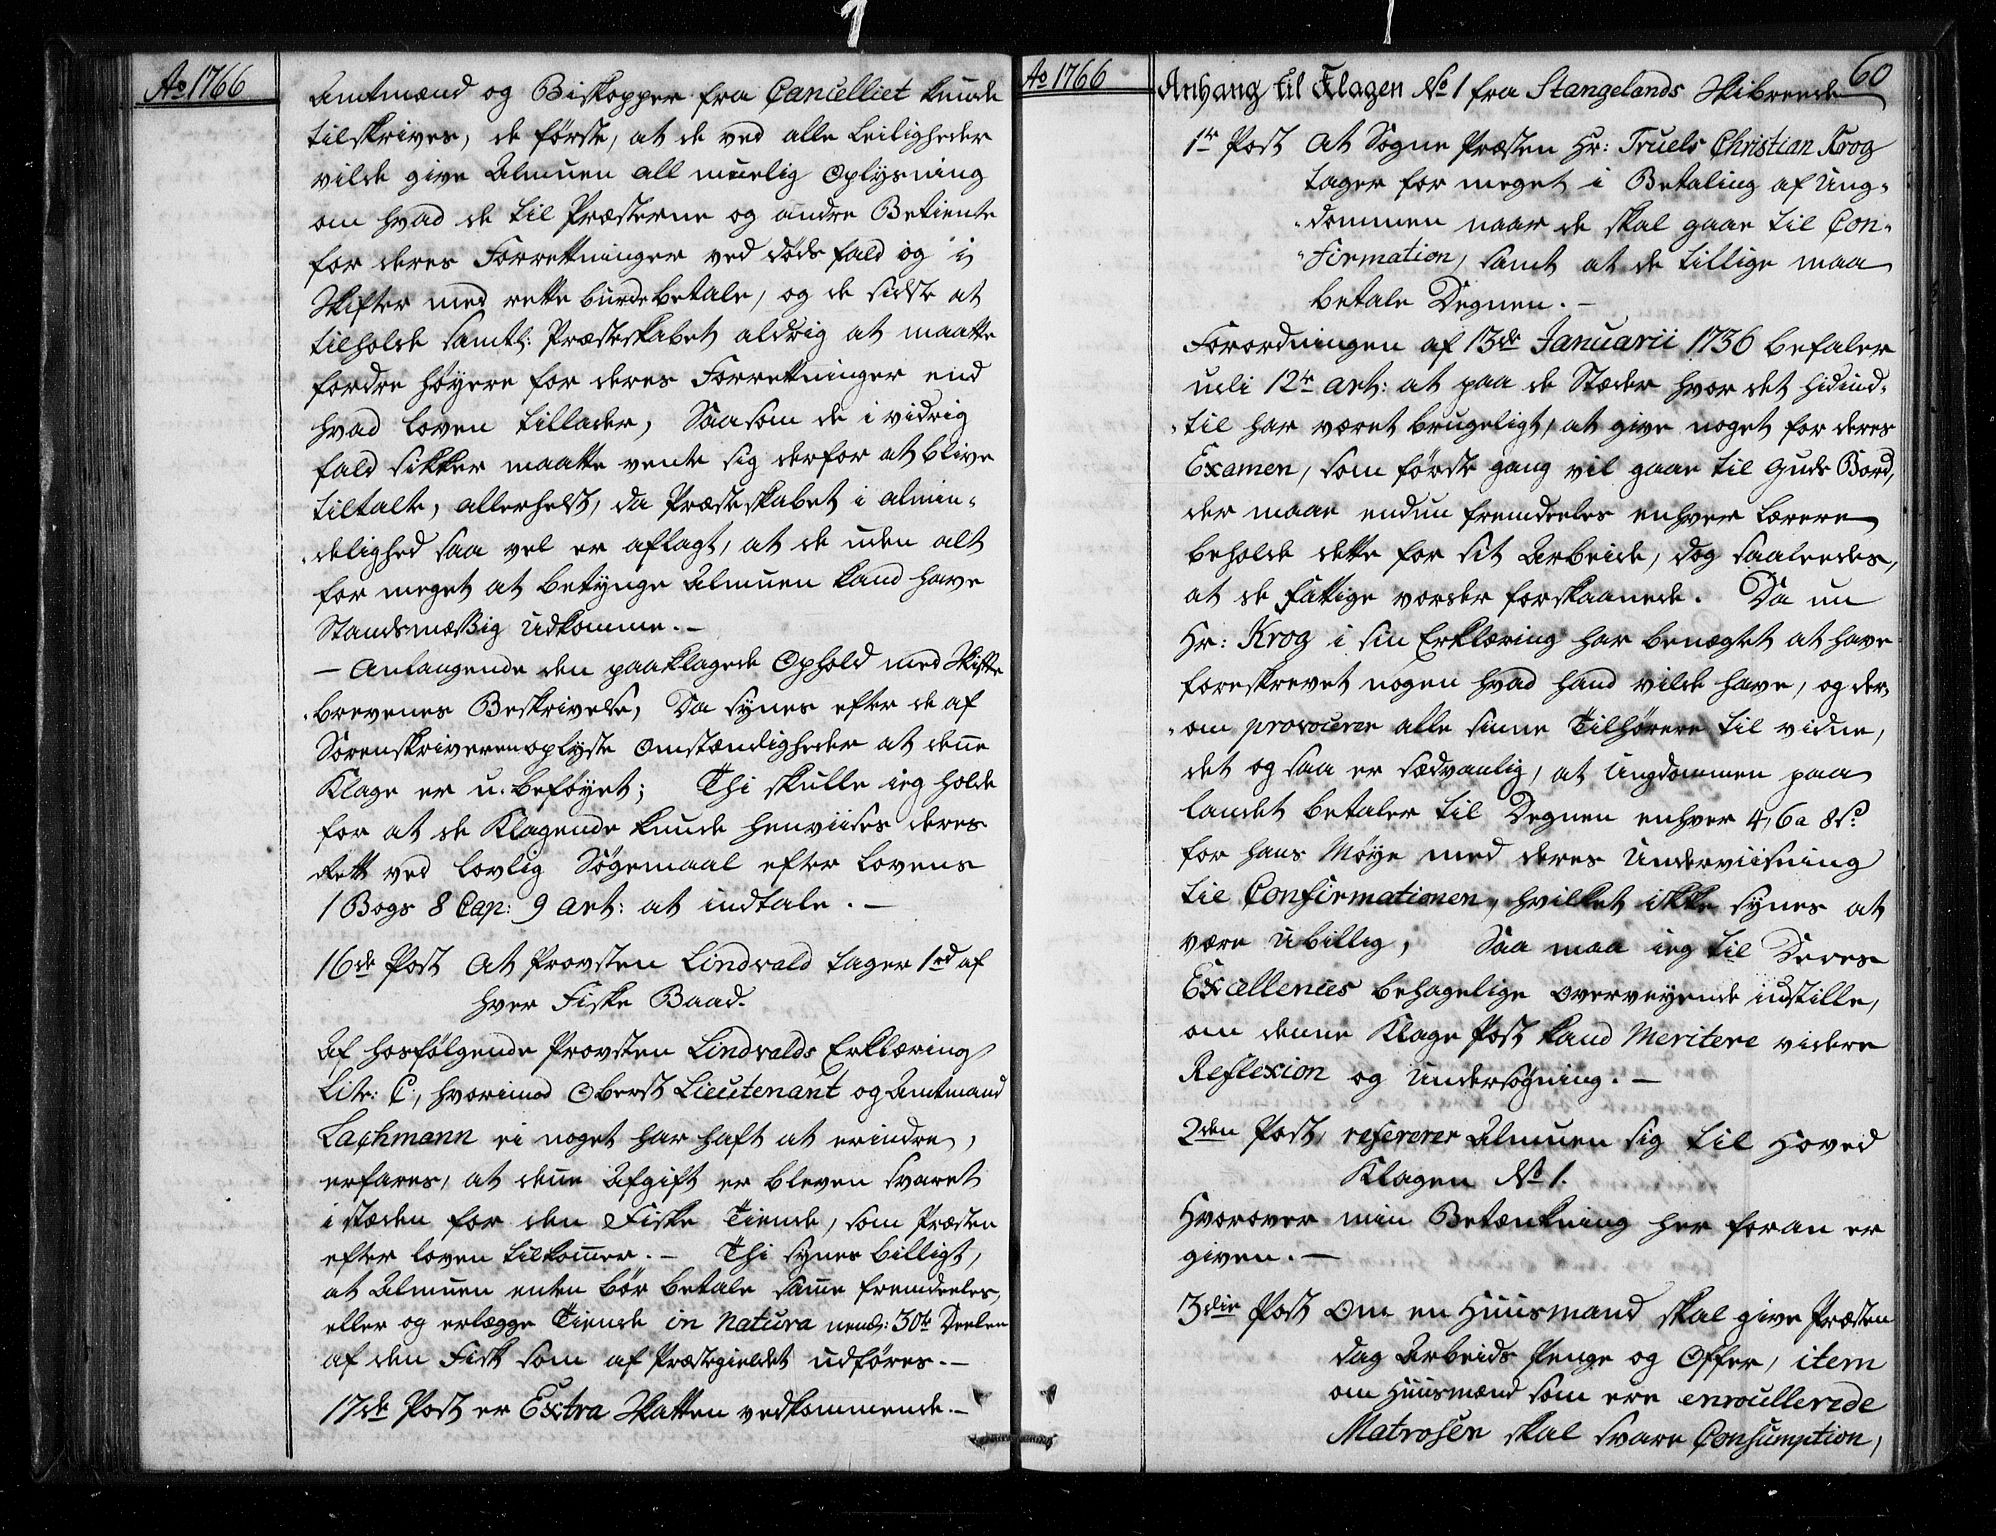 Ao 1766
Amtmænd og Biskopper fra Cancelliet kunde
tilskrives, de første, at de ved alle Leiligheder
vilde give Almuen all muelig Oplysning
om hvad de til Præsterne og andre Betiente
for deres Forretninger ved dødsfald og i
Skifter med rette burde betale, og de sidste at
tilholde samtl: Præsteskabet aldrig at maatte
fordre høyere for deres Forretninger end
hvad Loven tillader, Saasom de i vidrig
fald sikker maatte vente sig derfor at blive
tiltalte, allerhelst, da Præsteskabet i almin-
delighed saa vel er aflagt, at de uden alt
for meget at betynge Almuen kand have
Standsmæssig Udkomme. –
– Anlangende den paaklagede Ophold med Skifte
brevenes Beskrivelse, Da synes efter de af
Sorenskriveren oplyste Omstændigheder at denne
Klage er u-beføyet; Thi skulle ieg holde
for at de Klagende kunde henviises deres
Rett ved lovlig Søgemaal efter Lovens
1 Bogs 8 Cap: 9 art: at indtale. –
16de Post At Provsten Lindvald tager 1 rd af
hver Fiske Baad.
Af hosfølgende Provsten Lindvalds Erklæring
Litr: C:, hvorimod Oberst Lieutenant og Amtmand
Lachmann ei noget har haft at erindre,
erfares, at denne Afgift er bleven svaret
i stæden for den Fiske Tiende, som Præsten
efter Loven tilkommer. – Thi synes billigt,
at Almuen enten bør betale samme fremdeeles,
eller og erlægge Tiende in Natura nemlig: 30te Deelen
af den Fisk som af Præstegieldet udføres. –
17de Post er Extra Skatten vedkommende. –
Ao 1766
60
Anhang til Klagen No 1 fra Stangelands Skibreede
1te Post At Sogne Præsten Hr: Truels Christian Krog
tager for meget i Betaling af Ung-
dommen naar de skal gaae til Con-
firmation, samt at de tillige maa
betale Degnen. –
Forordningen af 13de Januarii 1736 befaler
udi 12te art: at paa de Stæder hvor det hidind-
til har været brugeligt, at give noget for deres
Examen, som første gang vil gaae til Guds Bord,
der maae endnu fremdeeles enhver Lærere
beholde dette for sit Arbeide, dog saaledes,
at de fattige vorder forskaanede. Da nu
Hr: Krog i sin Erklæring har benægtet at have
foreskrevet nogen hvad hand vilde have, og der-
om provocerer alle sinne Tilhørere til vidne,
det og saa er sædvanlig, at Ungdommen paa
Landet betaler til Degnen enhver 4, 6 a 8 s.
for hans Møye med deres Underviisning
til Confirmationen, hvilket ikke synes at
være ubillig, Saa maa ieg til Deres
Excellences behagelige Overveyende indstille,
om denne Klage Post kand Meritere videre
Reflexion og Undersøgning. –
2den Post, refererer Almuen sig til Hoved
Klagen No 1.
Hvorover min Betænkning her foran er
given. –
3die Post Om en Huusmand skal give Præsten
dag Arbeids Penge og Offer, item
om Huusmænd som ere enroullerede
Matroser skal svare Consumption,